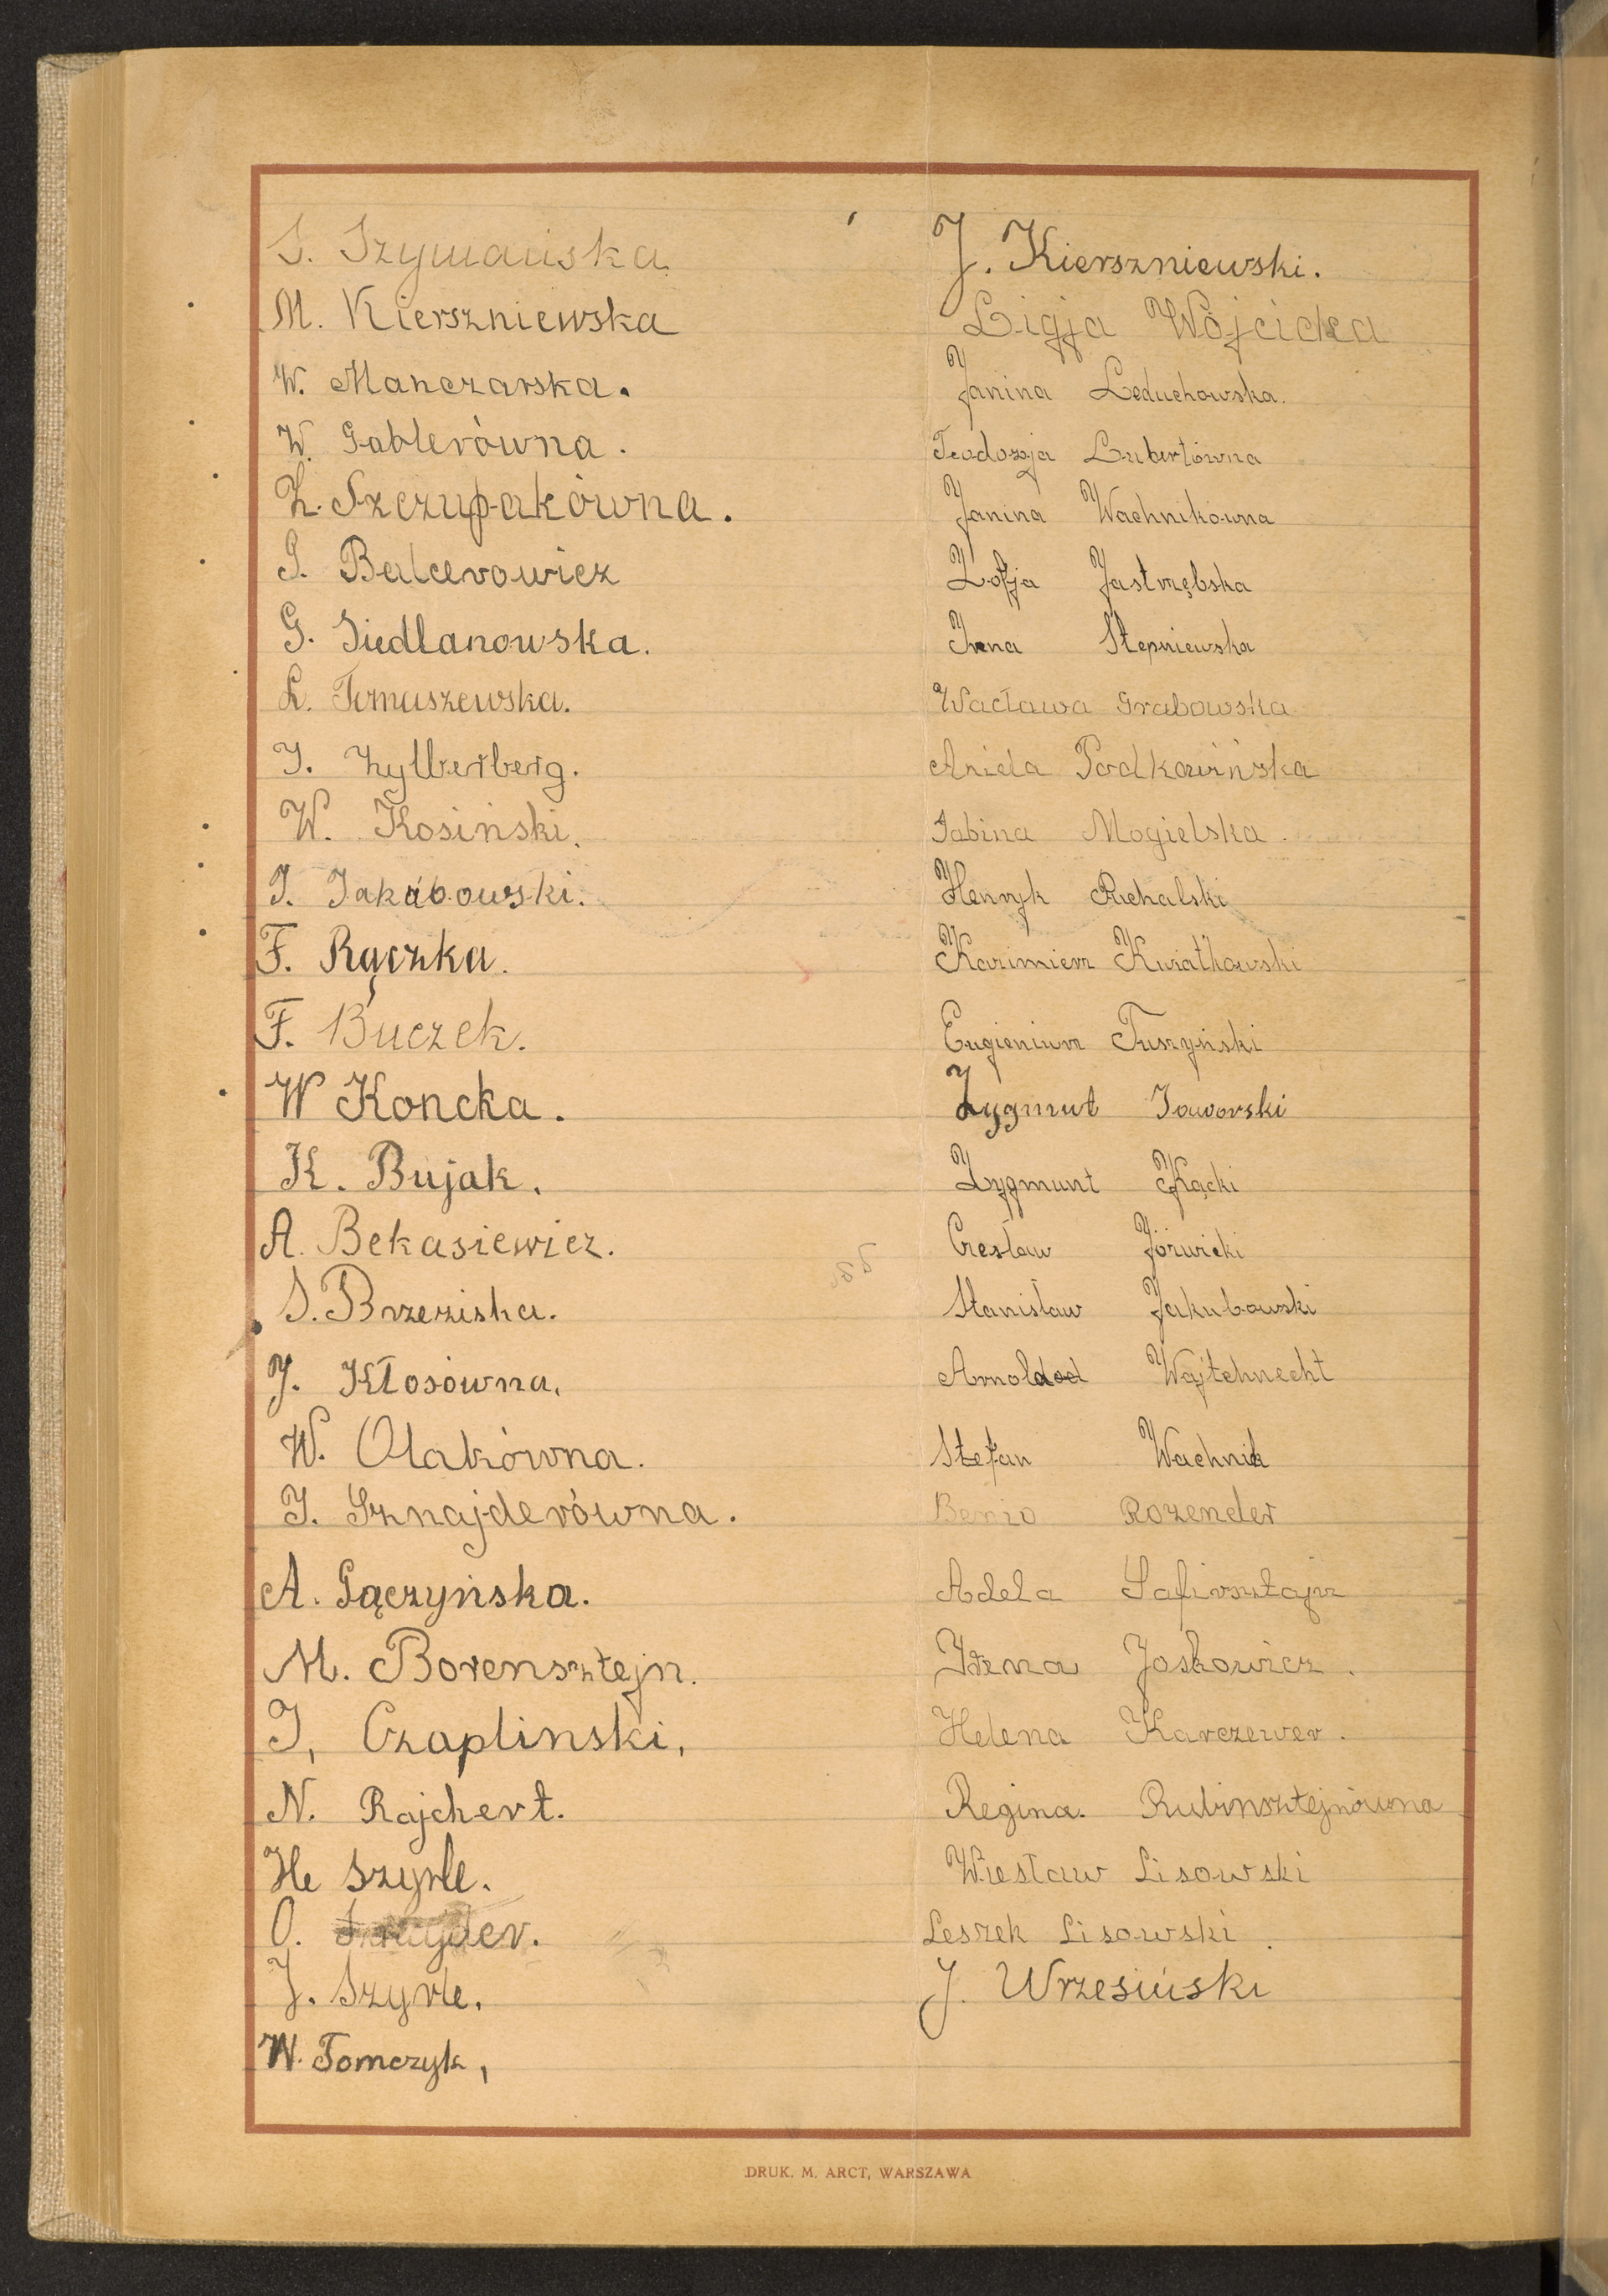 S. Szymańska
M. Kierszniewska
W. Manczarska.
W. Gablerówna.
Z. Szczupakówna.
S. Balcerowicz
G. Siedlanowska.
L. Tomaszewska.
I. Zylberberg.
W. Kosiński.
J. Jakóbowski.
F. Rączka.
F. Buczek.
W Koncka.
K. Bujak.
A. Bekasiewicz.
S. Brzeziska.
J. Kłosówna.
W. Olakówna.
I. Sznajderówna.
A. Gączyńska.
M. Borensztejn.
I, Czaplinski,
N. Rajchert.
He Szyrle.
O.
J. Szyrle.
W. Tomczyk,
J. Kierszniewski.
Ligja Wójcicka
Janina Leduchowska.
Teodozja Lubertówna
Janina Wachnikówna
Zofja Jastrzębska
Irena Stepniewska
Wacława Grabowska
Aniela Podkowińska
Sabina Mogielska.
Henryk Puchalski
Kazimierz Kwiatkowski
Eugieniusz Tuszyński
Zygmut Jaworski
Zygmunt Kącki
Czesław Józwicki
Stanisław Jakubowski
Arnold Wajtchnecht
Stefan Wachnik
Benio Rozender
Adela Safirsztajn
Irena Joskowicz.
Helena Karczewer.
Regina. Rubinsztejnówna
Wiesław Lisowski
Leszek Lisowski.
J. Wrzesiński
DRUK. M. ARCT, WARSZAWA